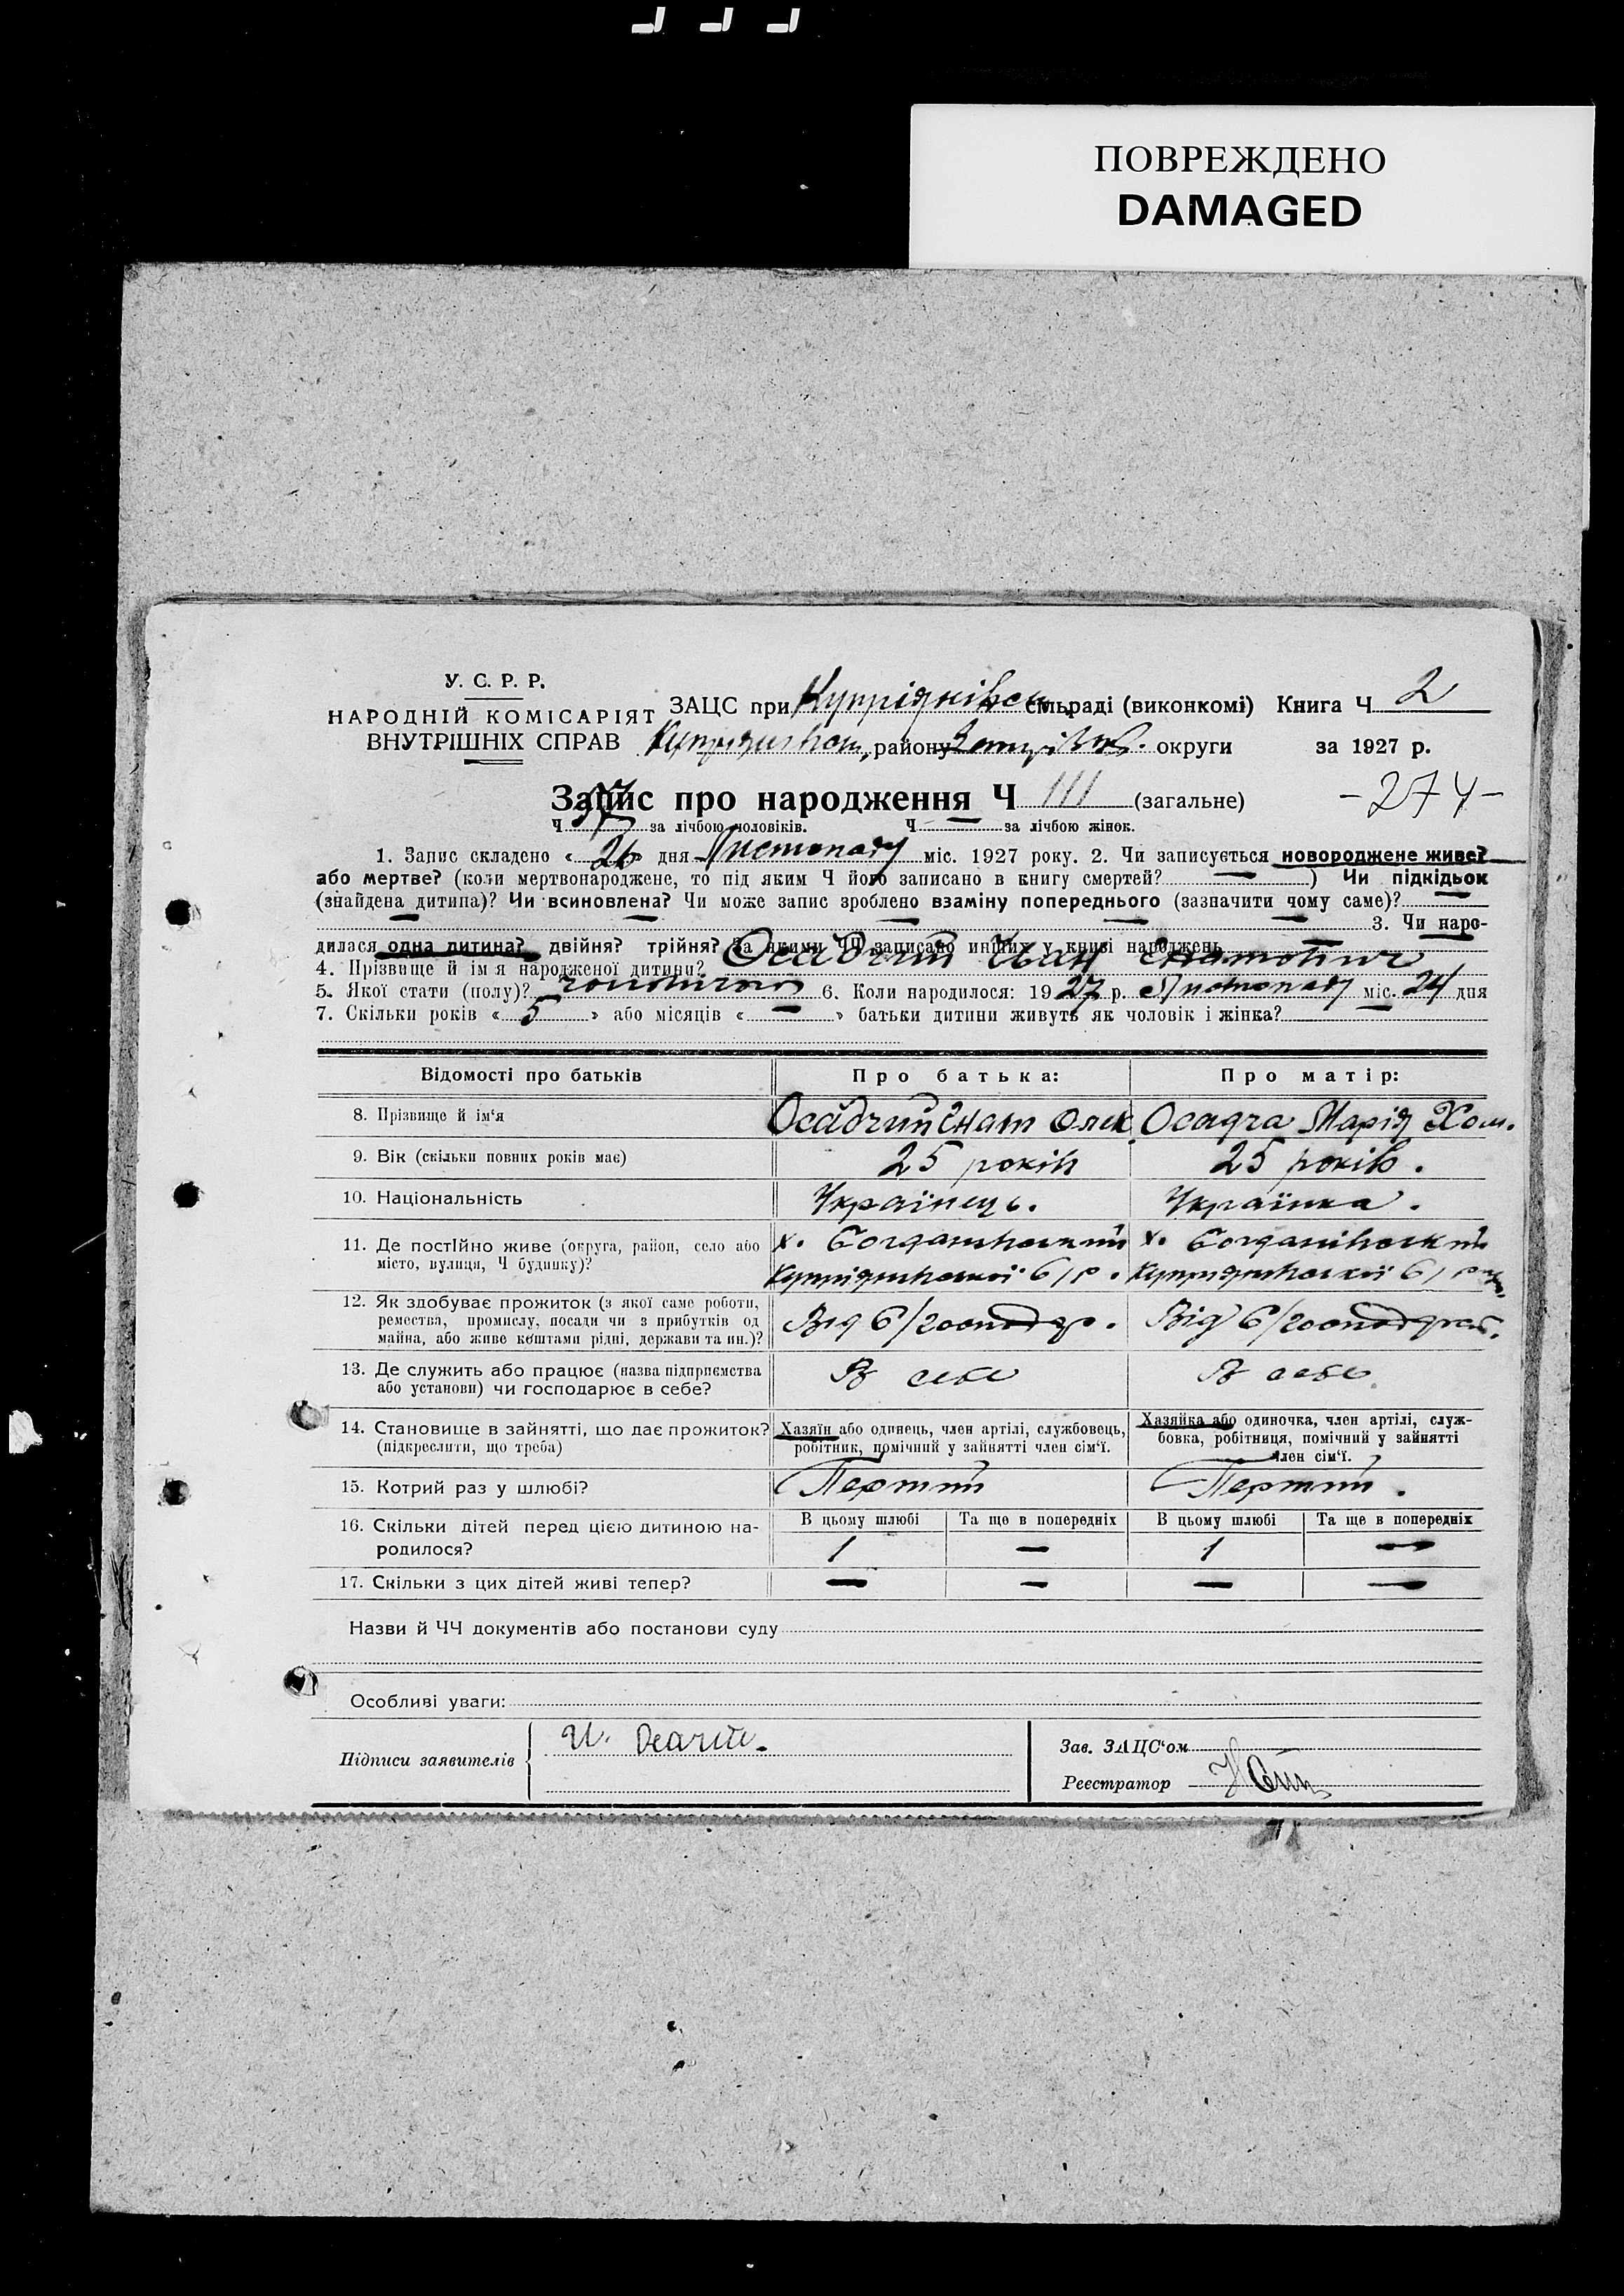 ПОВРЕЖДЕНО
DAMAGED
У. С. Р. Р.
НАРОДНІЙ КОМІСАРІЯТ
ВНУТРІШНІХ СПРАВ
ЗАЦС при сільраді (виконкомі) Книга Ч 2
району округи за 1927 р.
Запис про народження Ч 111 (загальне) -274-
Ч за лічбою чоловіків. Ч — за лічбою жінок.
1. Запис складено « 26 » дня Листопаду міс. 1927 року. 2. Чи записується новороджене живе?
або мертве? (коли мертвонароджене, то під яким Ч його записано в книгу смертей? — ) Чи підкідьок
(знайдена дитина)? Чи всиновлена? Чи може запис зроблено взаміну попереднього (зазначити чому саме)?
3. Чи наро-
дилася одна дитина? двійня? трійня? За якими ЧЧ записано инших у книзі народжень
4. Прізвище й ім'я народженої дитини? Осадчий Іван Гнатович
5. Якої стати (полу)? чоловічої 6. Коли народилося: 1927 р. Листопаду міс. 24 дня
7. Скільки років « 5 » або місяців « — » батьки дитини живуть як чоловік і жінка?
Відомості про батьків Про батька: Про матір:
8. Прізвище й ім'я Осадчий Гнат Олек. Осадча Марія Хом.
9. Вік (скільки повних років має) 25 років 25 років.
10. Національність Українець. Українка.
11. Де постійно живе (округа, район, село або х. Богданівський х. Богданівський
місто, вулиця, Ч будинку)?
12. Як здобуває прожиток (з якої саме роботи,
ремества, промислу, посади чи з прибутків од
майна, або живе коштами рідні, держави та ин.)? Від с/господар. Від с/господар.
13. Де служить або працює (назва підприємства В себе В себе
або установи) чи господарює в себе?
14. Становище в зайнятті, що дає прожиток? Хазяїн або одинець, член артілі, службовець, Хазяйка або одиночка, член артілі, служ-
(підкреслити, що треба) робітник, помічний у зайнятті член сім'ї. бовка, робітниця, помічний у зайнятті
член сім'ї.
15. Котрий раз у шлюбі? Перший Перший.
16. Скільки дітей перед цією дитиною на- В цьому шлюбі Та ще в попередніх В цьому шлюбі Та ще в попередніх
родилося? 1 — 1 —
17. Скільки з цих дітей живі тепер? — — — —
Назви й ЧЧ документів або постанови суду
Особливі уваги:
Підписи заявителів
Зав. ЗАЦС'ом
Реєстратор